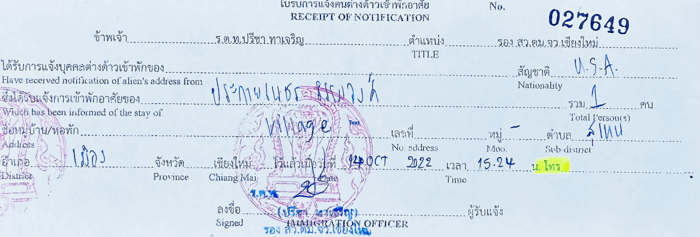 ใบรับการแจ้งคนต่างด้าวเข้าพักอาศัย No. 027649
RECEIPT OF NOTIFICATION
ข้าพเจ้า ร.ต.ท.ปรีชา ทาเจริญ ตำแหน่ง รอง สว.ตม.จว.เชียงใหม่
TITLE
ได้รับการแจ้งบุคคลต่างด้าวเข้าพักของ สัญชาติ U.S.A.
Have received notification of alien's address from Nationality
ซึ่งได้รับแจ้งการเข้าพักอาศัยของ รวม 1 คน
Which has been informed of the stay of Total Person(s)
ชื่อหมู่บ้าน/หอพัก Village เลขที่ หมู่ - ตำบล
Address No. address Moo. Sub-district
อำเภอ เมือง จังหวัด เชียงใหม่ ไว้แล้วเมื่อวันที่ OCT 2022 เวลา 15.24 น. โทร
District Province Chiang Mai Date Time
ร.ต.ท.
ลงชื่อ (ปรีชา ทาเจริญ) ผู้รับแจ้ง
Signed IMMIGRATION OFFICER
รอง สว.ตม.จว.เชียงใหม่